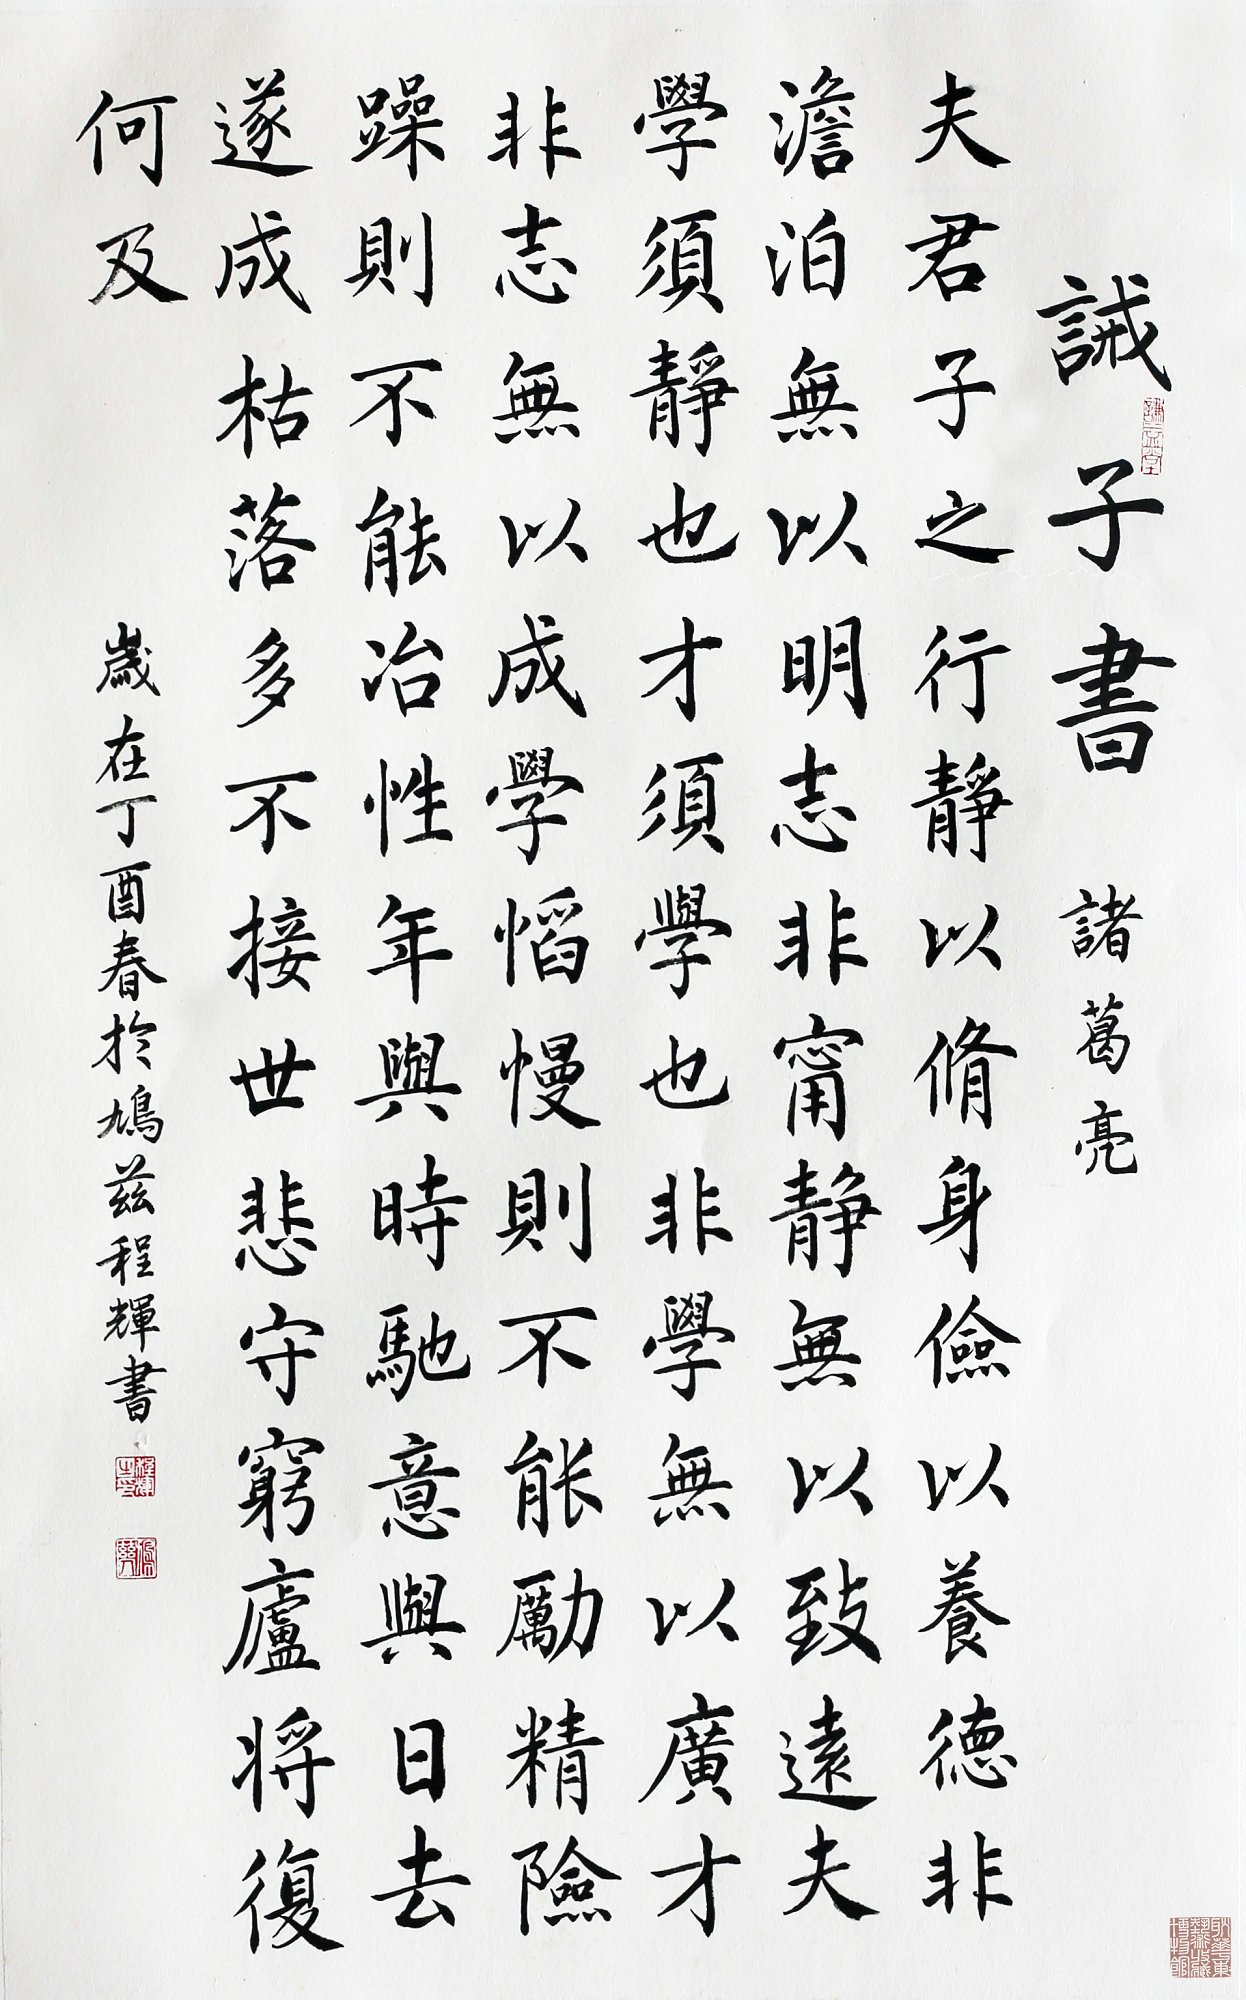 誡子書 諸葛亮
夫君子之行靜以脩身儉以養德非
澹泊無以明志非甯靜無以致遠夫
學須靜也才須學也非學無以廣才
非志無以成學慆慢則不能勵精險
躁則不能冶性年與時馳意與日去
遂成枯落多不接世悲守窮廬將復
何及
歲在丁酉春於鳩茲程輝書